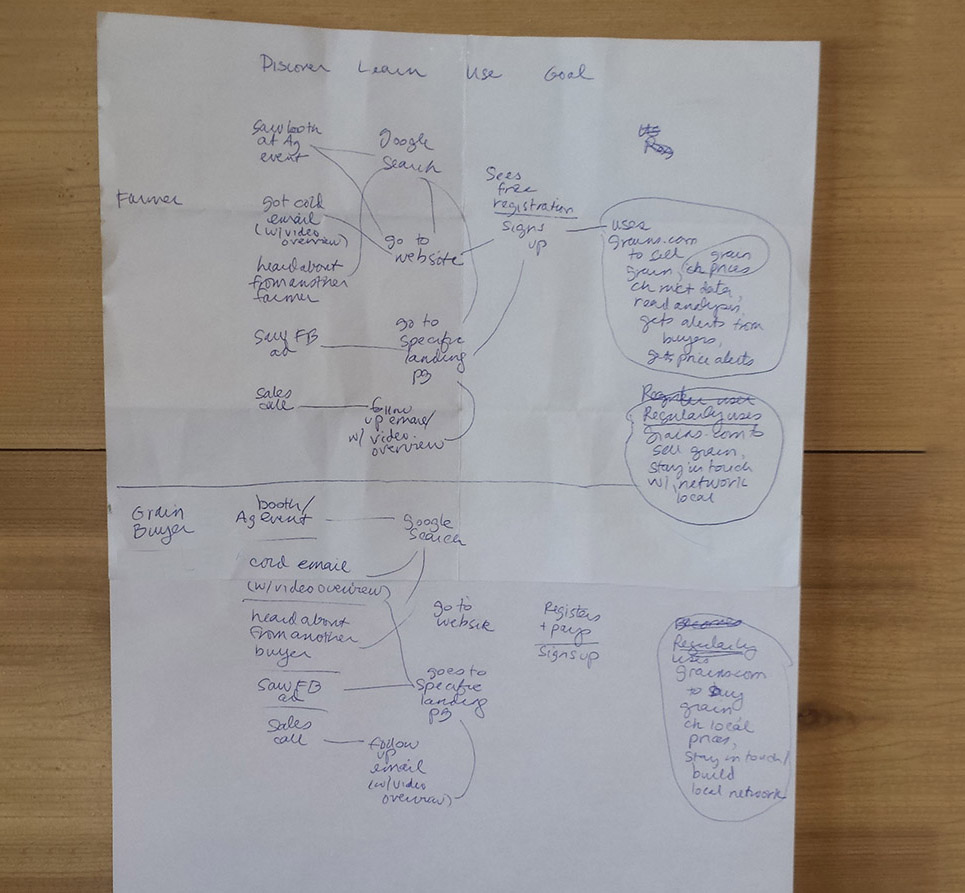 Discover Learn Use Goal
Farmer
Saw booth
at Ag
event
got cold
email
(w/video
overview)
heard about
from another
farmer
Saw FB
ad
sales
call
google
search
go to
website
go to
specific
landing
pg
follow
up email/
w/ video
overview
Sees
free
registration
signs
up
uses
grains.com
to sell
grain,
grain
ch prices
ch mkt data,
read analysis,
gets alerts from
buyers,
gets price alerts
Regularly uses
grains.com to
sell grain,
stay in touch
w/ network
local
Grain
Buyer
booth/
Ag event
cold email
(w/video overview)
heard about
from another
buyer
Saw FB
ad
Sales
call
google
search
go to
website
goes to
specific
landing
pg
follow
up
email
(w/video
overview)
Registers
+ pays
Signs up
Regularly
uses
grains.com
to buy
grain
ch local
prices,
stay in touch/
build
local network